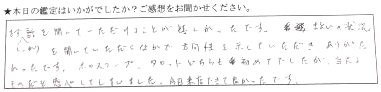 ★本日の鑑定はいかがでしたか？ご感想をお聞かせください。
対話を聞いていただけることが嬉しかったです。
を聞いていただくなかで方向性を示していただきありがた
かったです。ホロスコープ、タロットどちらも初めてでしたが、当たる
ものだと感心してしまいました。今日来店できて良かったです。